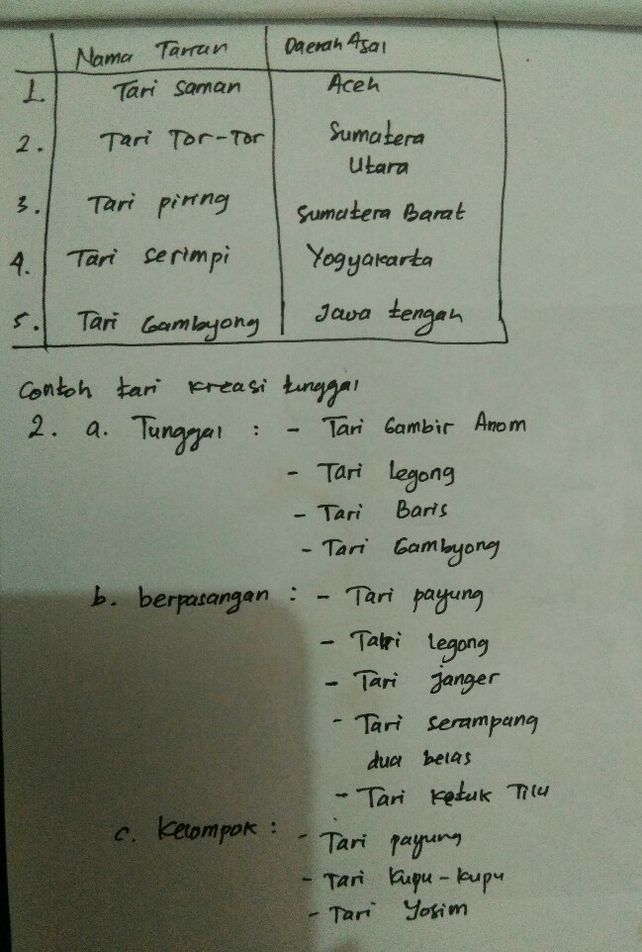 Nama Tarian Daerah Asal
1. Tari Saman Aceh
2. Tari Tor-Tor Sumatera
Utara
3. Tari piring Sumatera Barat
4. Tari serimpi Yogyakarta
5. Tari Gambyong Jawa tengah
Contoh tari kreasi tunggal
2. a. Tunggal : - Tari Gambir Anom
- Tari Legong
- Tari Baris
- Tari Gambyong
b. berpasangan : - Tari payung
- Tari legong
- Tari janger
- Tari serampang
dua belas
- Tari ketuk Tilu
c. Kelompok : - Tari payung
- Tari kupu-kupu
- Tari Yosim